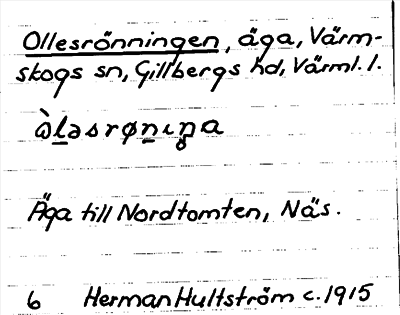 Ollesrönningen, äga, Värm-
skogs sn, Gillbergs hd, Värml. l.
òl̲əsrøn̲ıŋa
Äga till Nordtomten, Näs.
6 Herman Hultström c. 1915